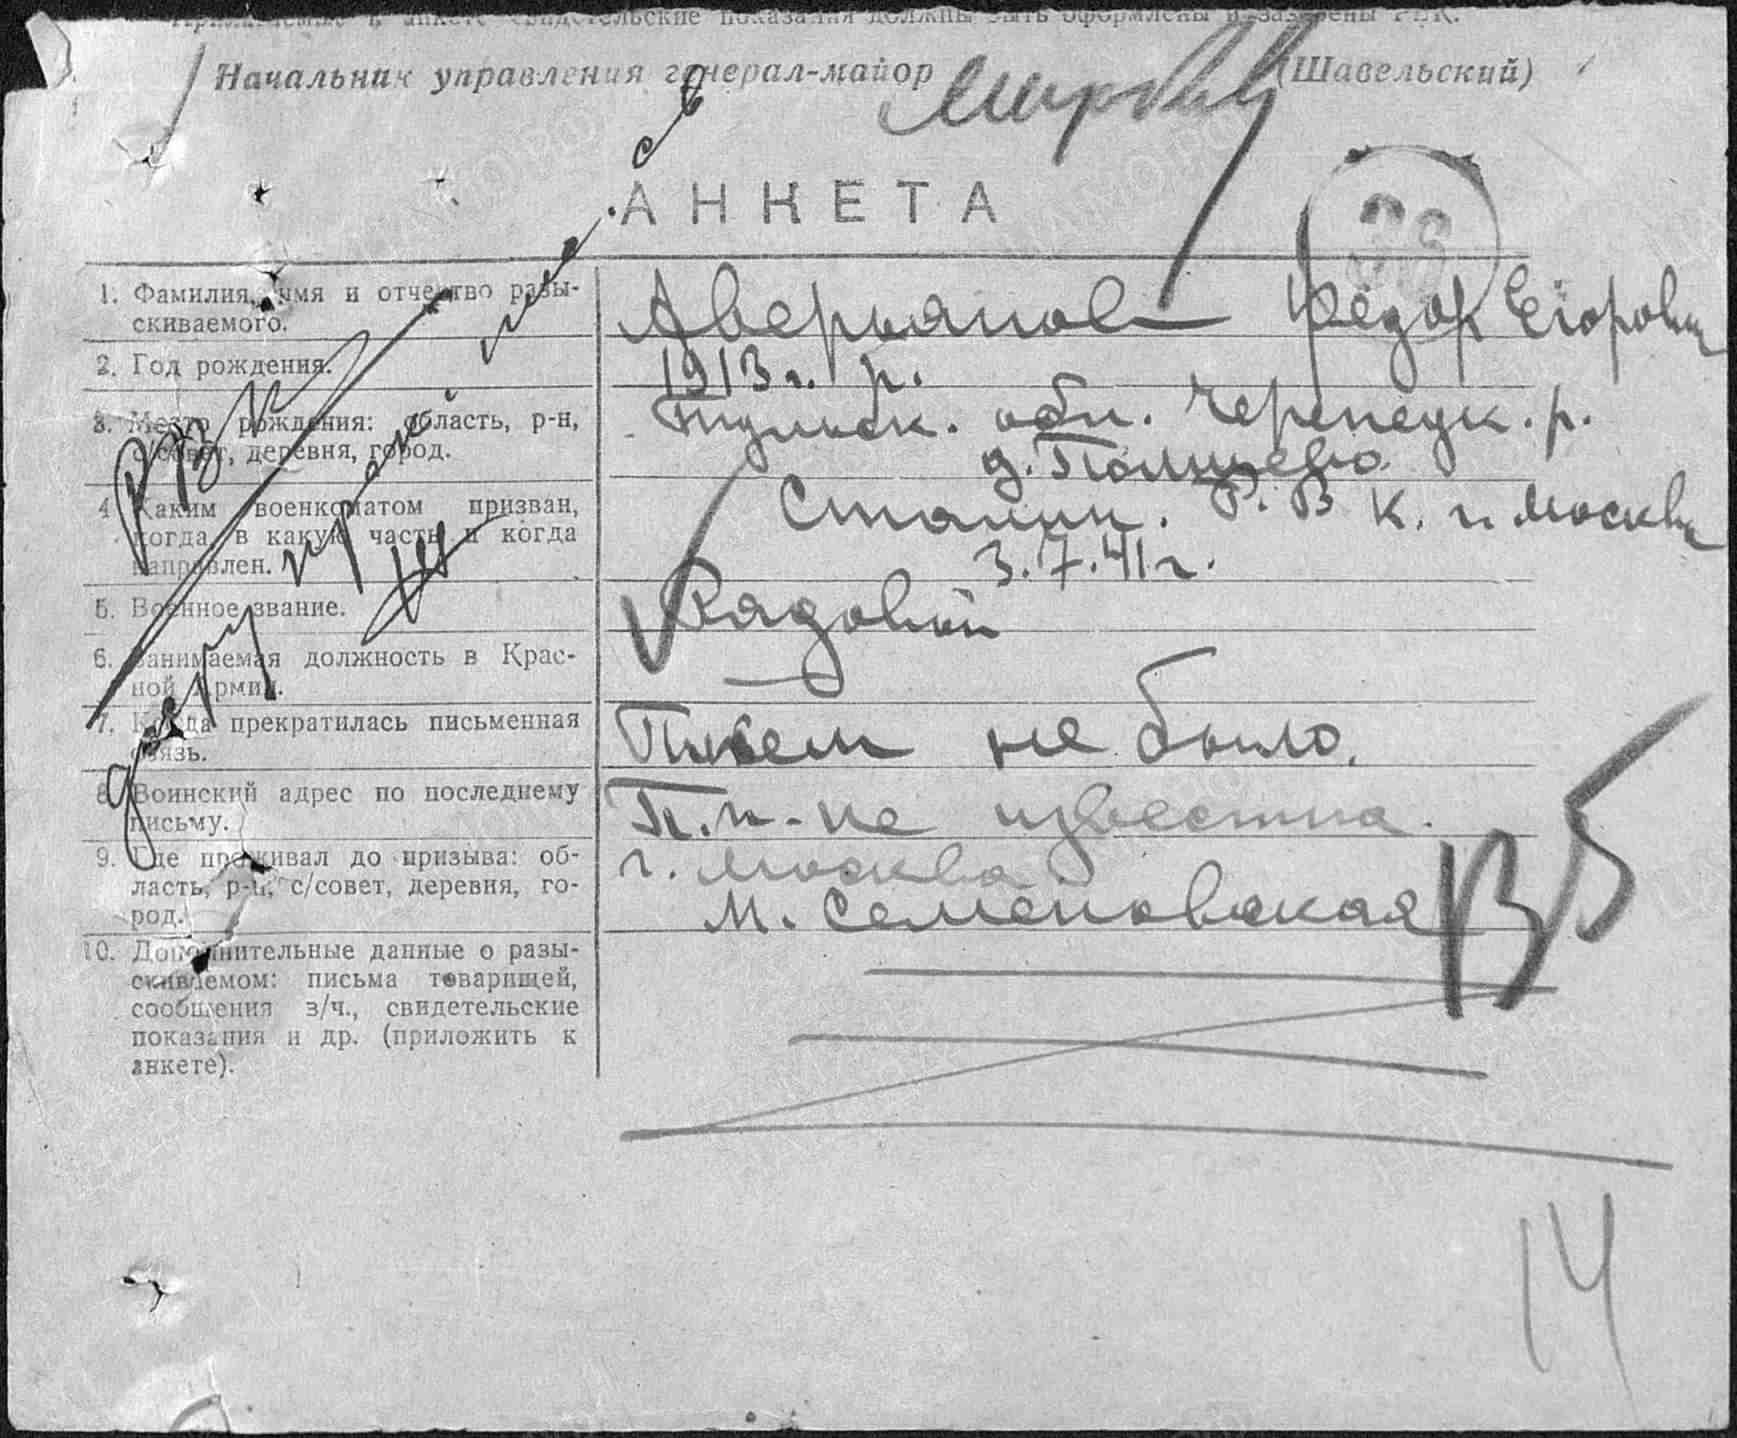 Прилагаемые к анкете свидетельские показания должны быть оформлены и заверены РВК.
Начальник управления генерал-майор (Шавельский)
АНКЕТА
1. Фамилия, имя и отчество разы-
скиваемого.
Аверьянов Федор Егорович
2. Год рождения.
1913 г. р.
3. Место рождения: область, р-н,
с/совет, деревня, город.
Тульск. обл. Черепецк. р.
д.
4. Каким военкоматом призван,
когда, в какую часть и когда
направлен.
Сталин. Р. В К. г. Москвы
3.7.41 г.
5. Военное звание.
Рядовой
6. Занимаемая должность в Крас-
ной Армии.
—
7. Когда прекратилась письменная
связь.
Писем не было.
8. Воинский адрес по последнему
письму.
П.п - не известна.
9. Где проживал до призыва: об-
ласть, р-н, с/совет, деревня, го-
род.
г. Москва
М. Семеновская
10. Дополнительные данные о разы-
скиваемом: письма товарищей,
сообщения з/ч., свидетельские
показания и др. (приложить к
анкете).
14